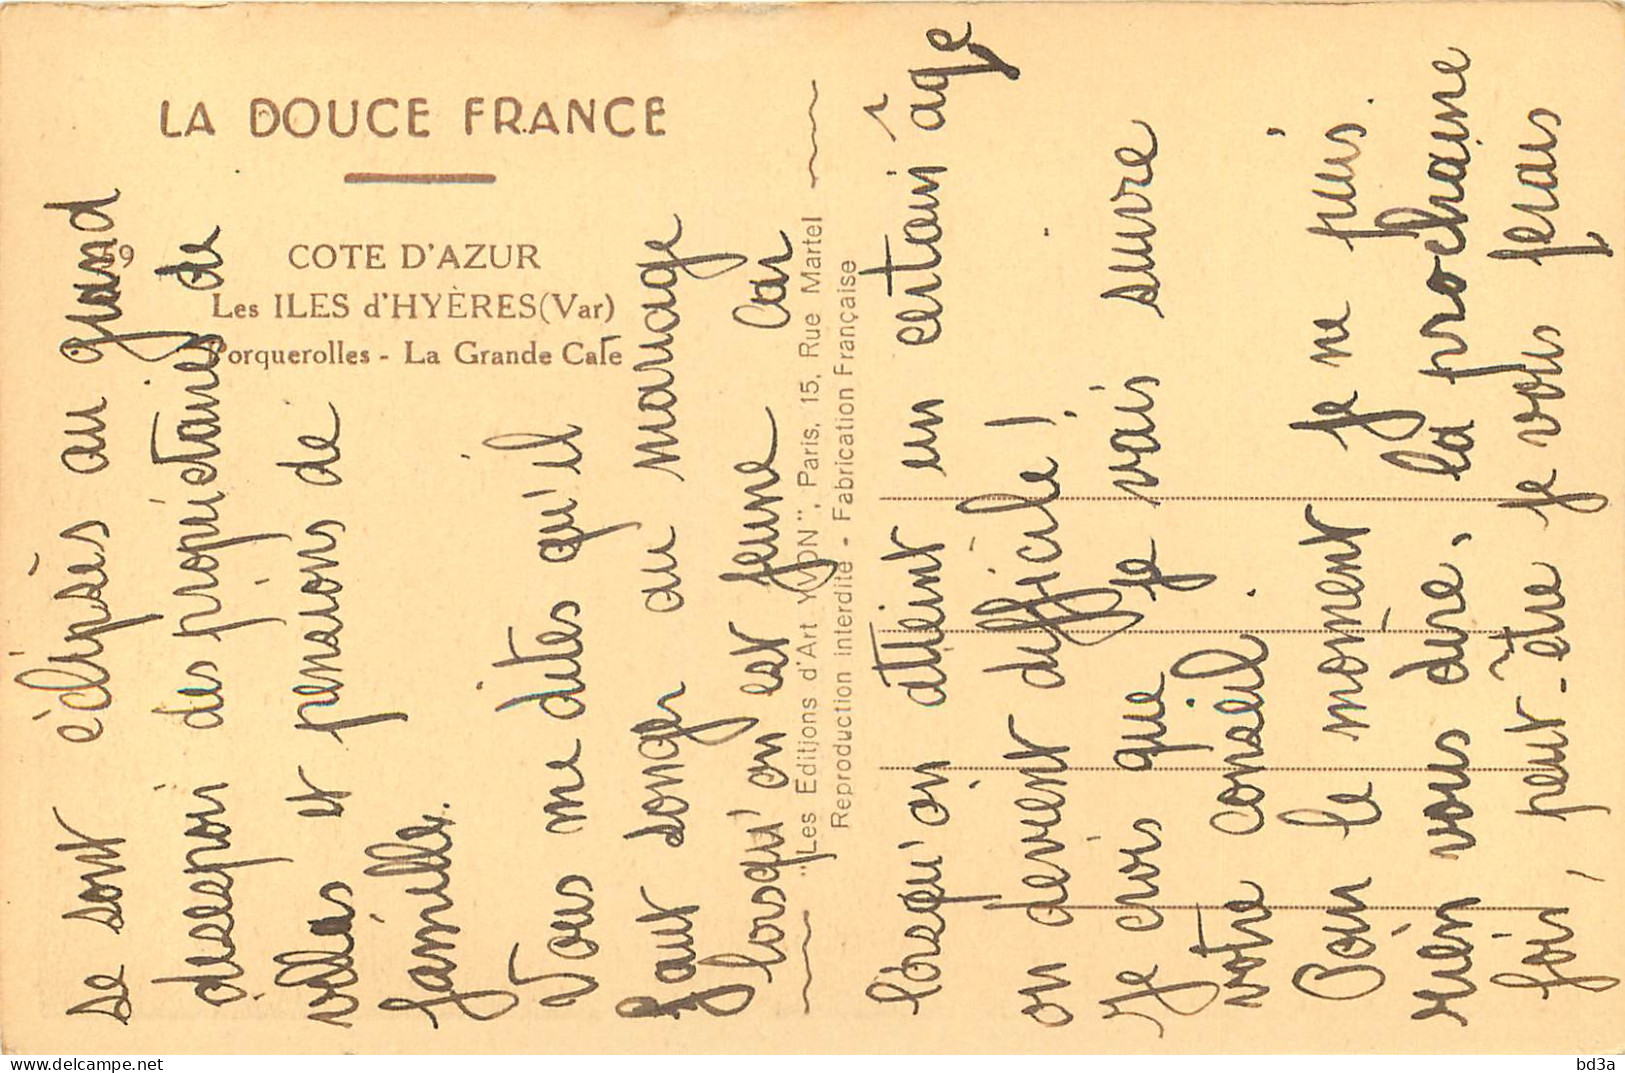 LA DOUCE FRANCE
59
COTE D'AZUR
Les ILES d'HYÈRES (Var)
Porquerolles - La Grande Cale
"Les Editions d'Art YVON", Paris, 15, Rue Martel
Reproduction interdite - Fabrication Française
se sont éclipsés au grand
desespoir des propriétaires de
villas et pensions de
famille.
Vous me dites qu'il
faut songer au mariage
lorsqu'on est jeune car
lorsqu'on atteint un certain âge
on devient difficile!
Je crois que je vais suivre
votre conseil.
Pour le moment je ne puis
rien vous dire, la prochaine
fois, peut-être je vous ferais
bd3a